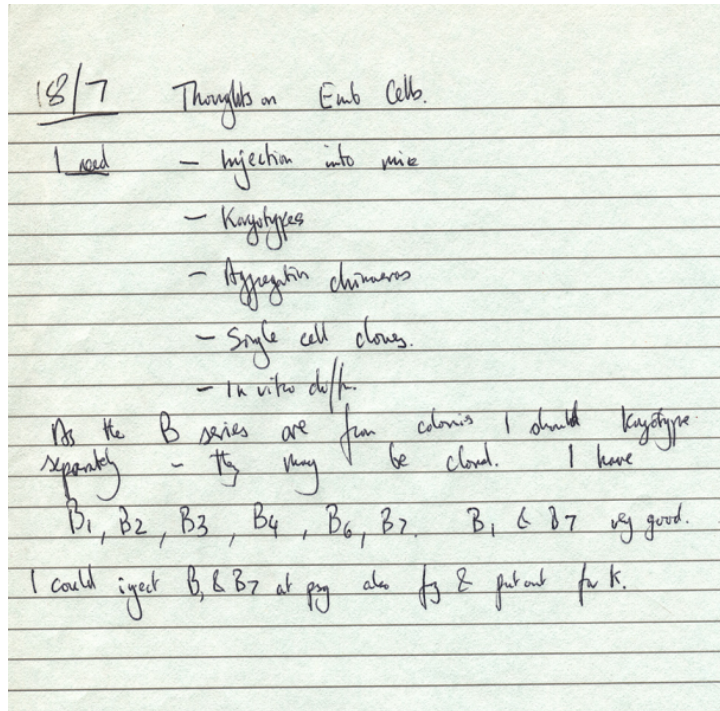 18/7 Thoughts on Emb Cells.
I need - Injection into mice
- Karyotypes
- Aggregation chimaeras
- Single cell clones.
- In vitro diffn.
As the B series are from colonies I should karyotype
separately - they may be clonal. I have
B1, B2, B3, B4, B6, B7. B1 & B7 very good.
I could inject B1 & B7 at psg also fz & put out for K.